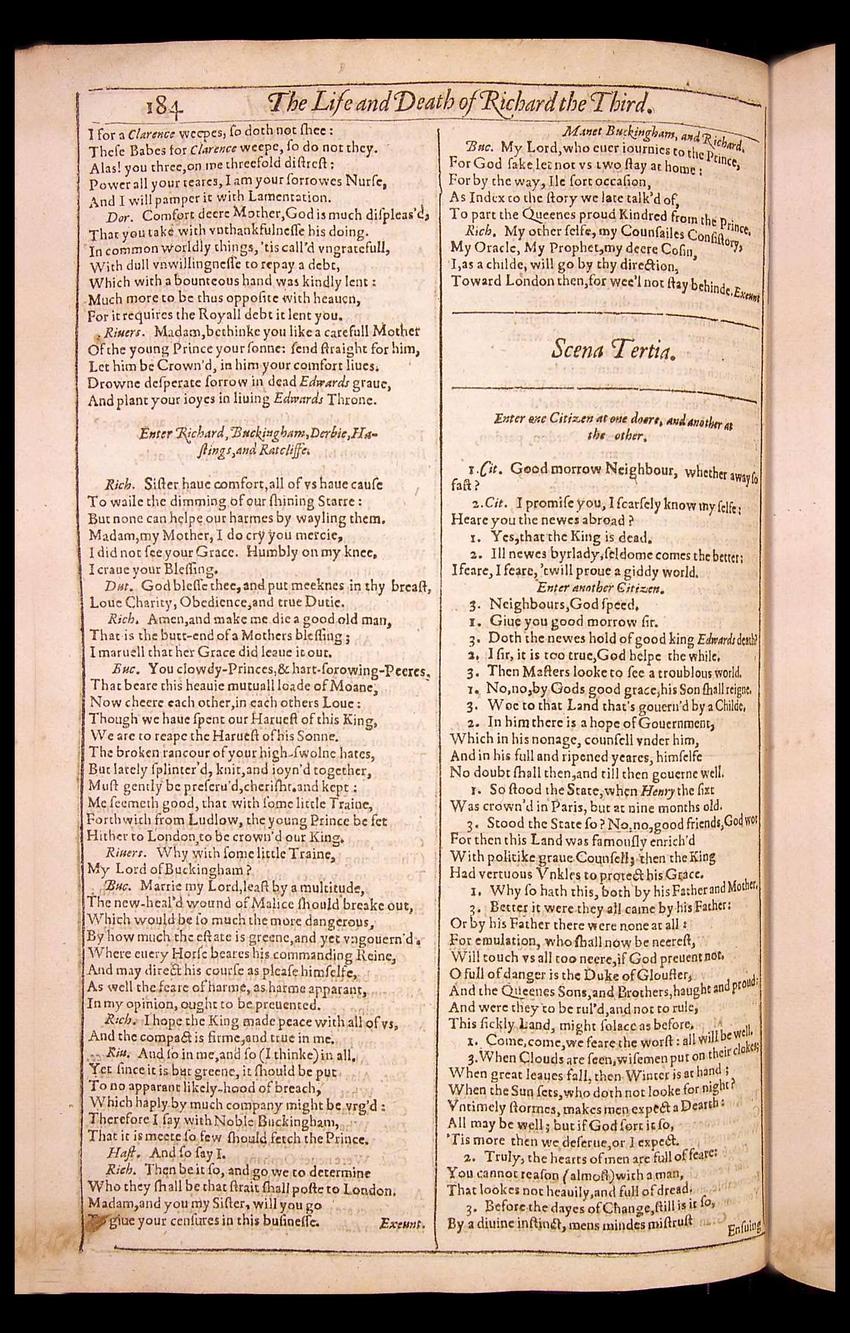 184 The Life and Death of Richard the Third.
I for a Clarence weepes, ſo doth not ſhee:
Theſe Babes for Clarence weepe, ſo do not they.
Alas! you three, on me threefold diſtreſt:
Power all your teares, I am your ſorrowes Nurſe,
And I will pamper it with Lamentation.
Dor. Comfort deere Mother, God is much diſpleas'd,
That you take with vnthankfulneſſe his doing.
In common worldly things, 'tis call'd vngratefull,
With dull vnwillingneſſe to repay a debt,
Which with a bounteous hand was kindly lent:
Much more to be thus oppoſite with heauen,
For it requires the Royall debt it lent you.
Riuers. Madam, bethinke you like a carefull Mother
Of the young Prince your ſonne: ſend ſtraight for him,
Let him be Crown'd, in him your comfort liues.
Drowne deſperate ſorrow in dead Edwards graue,
And plant your ioyes in liuing Edwards Throne.
Enter Richard, Buckingham, Derbie, Ha-
ſtings, and Ratcliffe.
Rich. Siſter haue comfort, all of vs haue cauſe
To waile the dimming of our ſhining Starre:
But none can helpe our harmes by wayling them.
Madam, my Mother, I do cry you mercie,
I did not ſee your Grace. Humbly on my knee,
I craue your Bleſſing.
Dut. God bleſſe thee, and put meeknes in thy breaſt,
Loue Charity, Obedience, and true Dutie.
Rich. Amen, and make me die a good old man,
That is the butt-end of a Mothers bleſſing;
I maruell that her Grace did leaue it out.
Buc. You clowdy-Princes, & hart-ſorowing-Peeres,
That beare this heauie mutuall loade of Moane,
Now cheere each other, in each others Loue:
Though we haue ſpent our Harueſt of this King,
We are to reape the Harueſt of his Sonne.
The broken rancour of your high-ſwolne hates,
But lately ſplinter'd, knit, and ioyn'd together,
Muſt gently be preſeru'd, cheriſht, and kept:
Me ſeemeth good, that with ſome little Traine,
Forthwith from Ludlow, the young Prince be fet
Hither to London, to be crown'd our King.
Riuers. Why with ſome little Traine,
My Lord of Buckingham?
Buc. Marrie my Lord, leaſt by a multitude,
The new-heal'd wound of Malice ſhould breake out,
Which would be ſo much the more dangerous,
By how much the eſtate is greene, and yet vngouern'd.
Where euery Horſe beares his commanding Reine,
And may direct his courſe as pleaſe himſelfe,
As well the feare of harme, as harme apparant,
In my opinion, ought to be preuented.
Rich. I hope the King made peace with all of vs,
And the compact is firme, and true in me.
Riu. And ſo in me, and ſo (I thinke) in all.
Yet ſince it is but greene, it ſhould be put
To no apparant likely-hood of breach,
Which haply by much company might be vrg'd:
Therefore I ſay with Noble Buckingham,
That it is meete ſo few ſhould fetch the Prince.
Haſt. And ſo ſay I.
Rich. Then be it ſo, and go we to determine
Who they ſhall be that ſtrait ſhall poſte to London.
Madam, and you my Siſter, will you go
To giue your cenſures in this buſineſſe. Exeunt.
Manet Buckingham, and Richard.
Buc. My Lord, who euer iournies to the Prince,
For God ſake let not vs two ſtay at home:
For by the way, Ile ſort occaſion,
As Index to the ſtory we late talk'd of,
To part the Queenes proud Kindred from the Prince.
Rich. My other ſelfe, my Counſailes Conſiſtory,
My Oracle, My Prophet, my deere Coſin,
I, as a childe, will go by thy direction,
Toward London then, for wee'l not ſtay behinde. Exeunt
Scena Tertia.
Enter one Citizen at one doore, and another at
the other.
1.Cit. Good morrow Neighbour, whether away ſo
faſt?
2.Cit. I promiſe you, I ſcarſely know my ſelfe:
Heare you the newes abroad?
1. Yes, that the King is dead.
2. Ill newes byrlady, ſeldome comes the better:
I feare, I feare, 'twill proue a giddy world.
Enter another Citizen.
3. Neighbours, God ſpeed.
1. Giue you good morrow ſir.
3. Doth the newes hold of good king Edwards death?
2. I ſir, it is too true, God helpe the while.
3. Then Maſters looke to ſee a troublous world.
1. No, no, by Gods good grace, his Son ſhall reigne.
3. Woe to that Land that's gouern'd by a Childe.
2. In him there is a hope of Gouernment,
Which in his nonage, counſell vnder him,
And in his full and ripened yeares, himſelfe
No doubt ſhall then, and till then gouerne well.
1. So ſtood the State, when Henry the ſixt
Was crown'd in Paris, but at nine months old.
3. Stood the State ſo? No, no, good friends, God wot
For then this Land was famouſly enrich'd
With politike graue Counſell; then the King
Had vertuous Vnkles to protect his Grace.
1. Why ſo hath this, both by his Father and Mother.
3. Better it were they all came by his Father:
Or by his Father there were none at all:
For emulation, who ſhall now be neereſt,
Will touch vs all too neere, if God preuent not.
O full of danger is the Duke of Glouſter,
And the Queenes Sons, and Brothers, haught and proud:
And were they to be rul'd, and not to rule,
This ſickly Land, might ſolace as before.
1. Come, come, we feare the worſt: all will be well.
3. When Clouds are ſeen, wiſemen put on their clokes;
When great leaues fall, then Winter is at hand;
When the Sun ſets, who doth not looke for night?
Vntimely ſtormes, makes men expect a Dearth:
All may be well; but if God ſort it ſo,
'Tis more then we deſerue, or I expect.
2. Truly, the hearts of men are full of feare:
You cannot reaſon (almoſt) with a man,
That lookes not heauily, and full of dread.
3. Before the dayes of Change, ſtill is it ſo,
By a diuine inſtinct, mens mindes miſtruſt
Enſuing